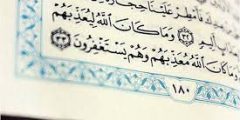 فَأَمْطِرْ عَلَيْنَا
أَلِيمٍ ٣٢ وَمَا كَانَ ٱللَّهُ لِيُعَذِّبَهُمْ
وَمَا كَانَ ٱللَّهُ مُعَذِّبَهُمْ وَهُمْ يَسْتَغْفِرُونَ ٣٣
١٨٠